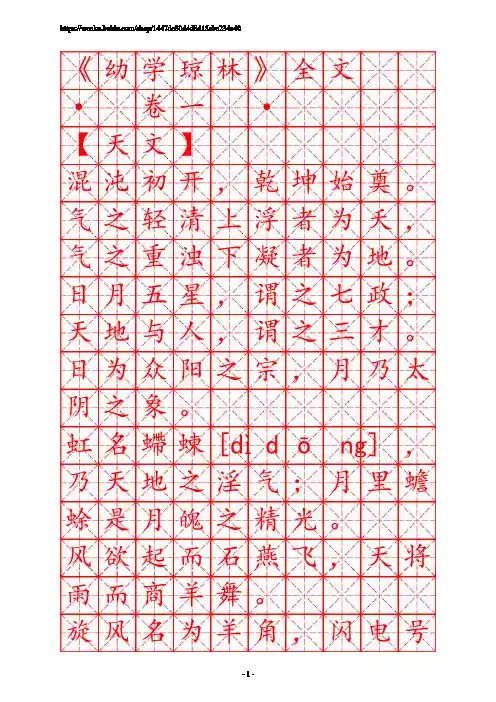 《幼学琼林》全文
• 卷一 •
【天文】
混沌初开，乾坤始奠。
气之轻清上浮者为天，
气之重浊下凝者为地。
日月五星，谓之七政；
天地与人，谓之三才。
日为众阳之宗，月乃太
阴之象。
虹名螮蝀[dì dōng]，
乃天地之淫气；月里蟾
蜍是月魄之精光。
风欲起而石燕飞，天将
雨而商羊舞。
旋风名为羊角，闪电号
- 1 -